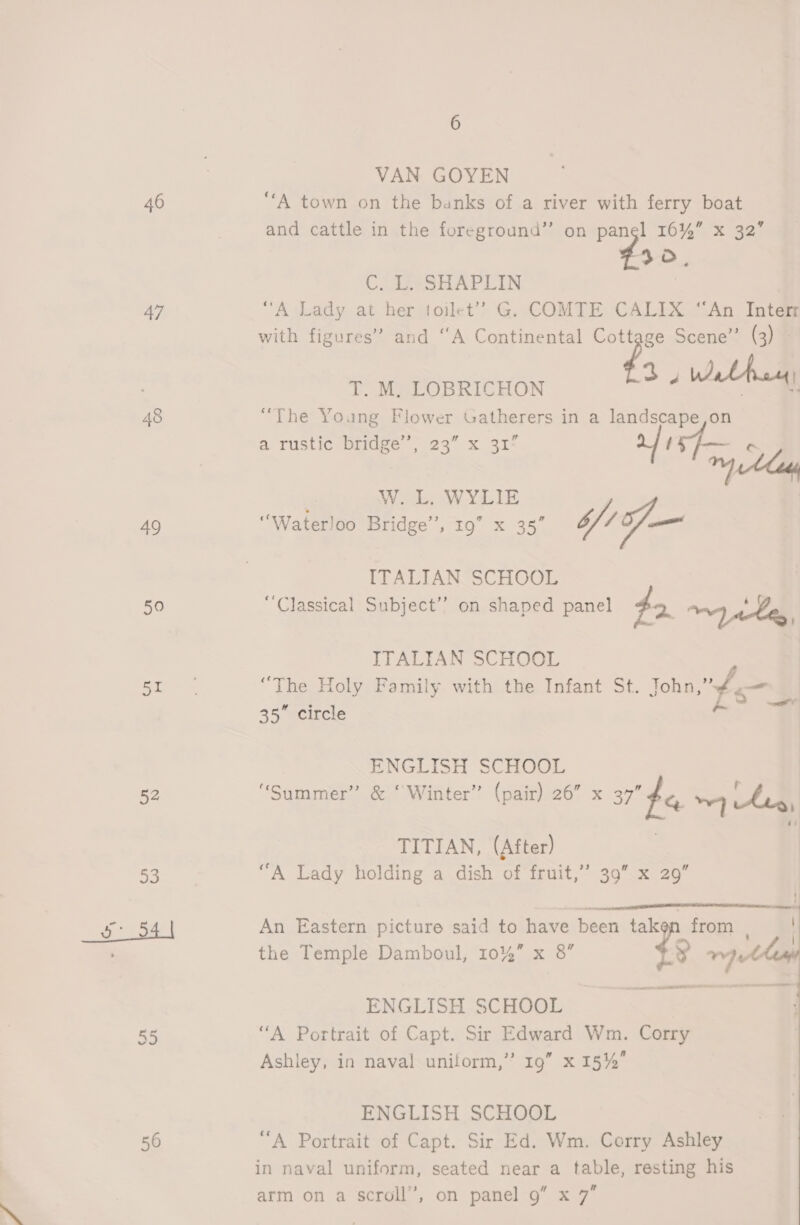 6
VAN GOYEN
46 “A town on the banks of a river with ferry boat
and cattle in the foreground” on panel 16½” x 32”
£30.
C. L. SHAPLIN
47 “A Lady at her toilet” G. COMTE CALIX “An Interr
with figures” and “A Continental Cottage Scene” (3)
£3
T. M. LOBRICHON
48 “The Young Flower Gatherers in a landscape, on
a rustic bridge”, 23” x 31”
W. L. WYLIE
49 “Waterloo Bridge”, 19” x 35”
ITALIAN SCHOOL
50 “Classical Subject” on shaped panel £2
ITALIAN SCHOOL
51 “The Holy Family with the Infant St. John,”
35” circle
ENGLISH SCHOOL
52 “Summer” & “Winter” (pair) 26” x 37”
TITIAN, (After)
53 “A Lady holding a dish of fruit,” 39” x 29”
54 An Eastern picture said to have been taken from
the Temple Damboul, 10½” x 8” £8
ENGLISH SCHOOL
55 “A Portrait of Capt. Sir Edward Wm. Corry
Ashley, in naval uniform,” 19” x 15½”
ENGLISH SCHOOL
56 “A Portrait of Capt. Sir Ed. Wm. Corry Ashley
in naval uniform, seated near a table, resting his
arm on a scroll”, on panel 9” x 7”